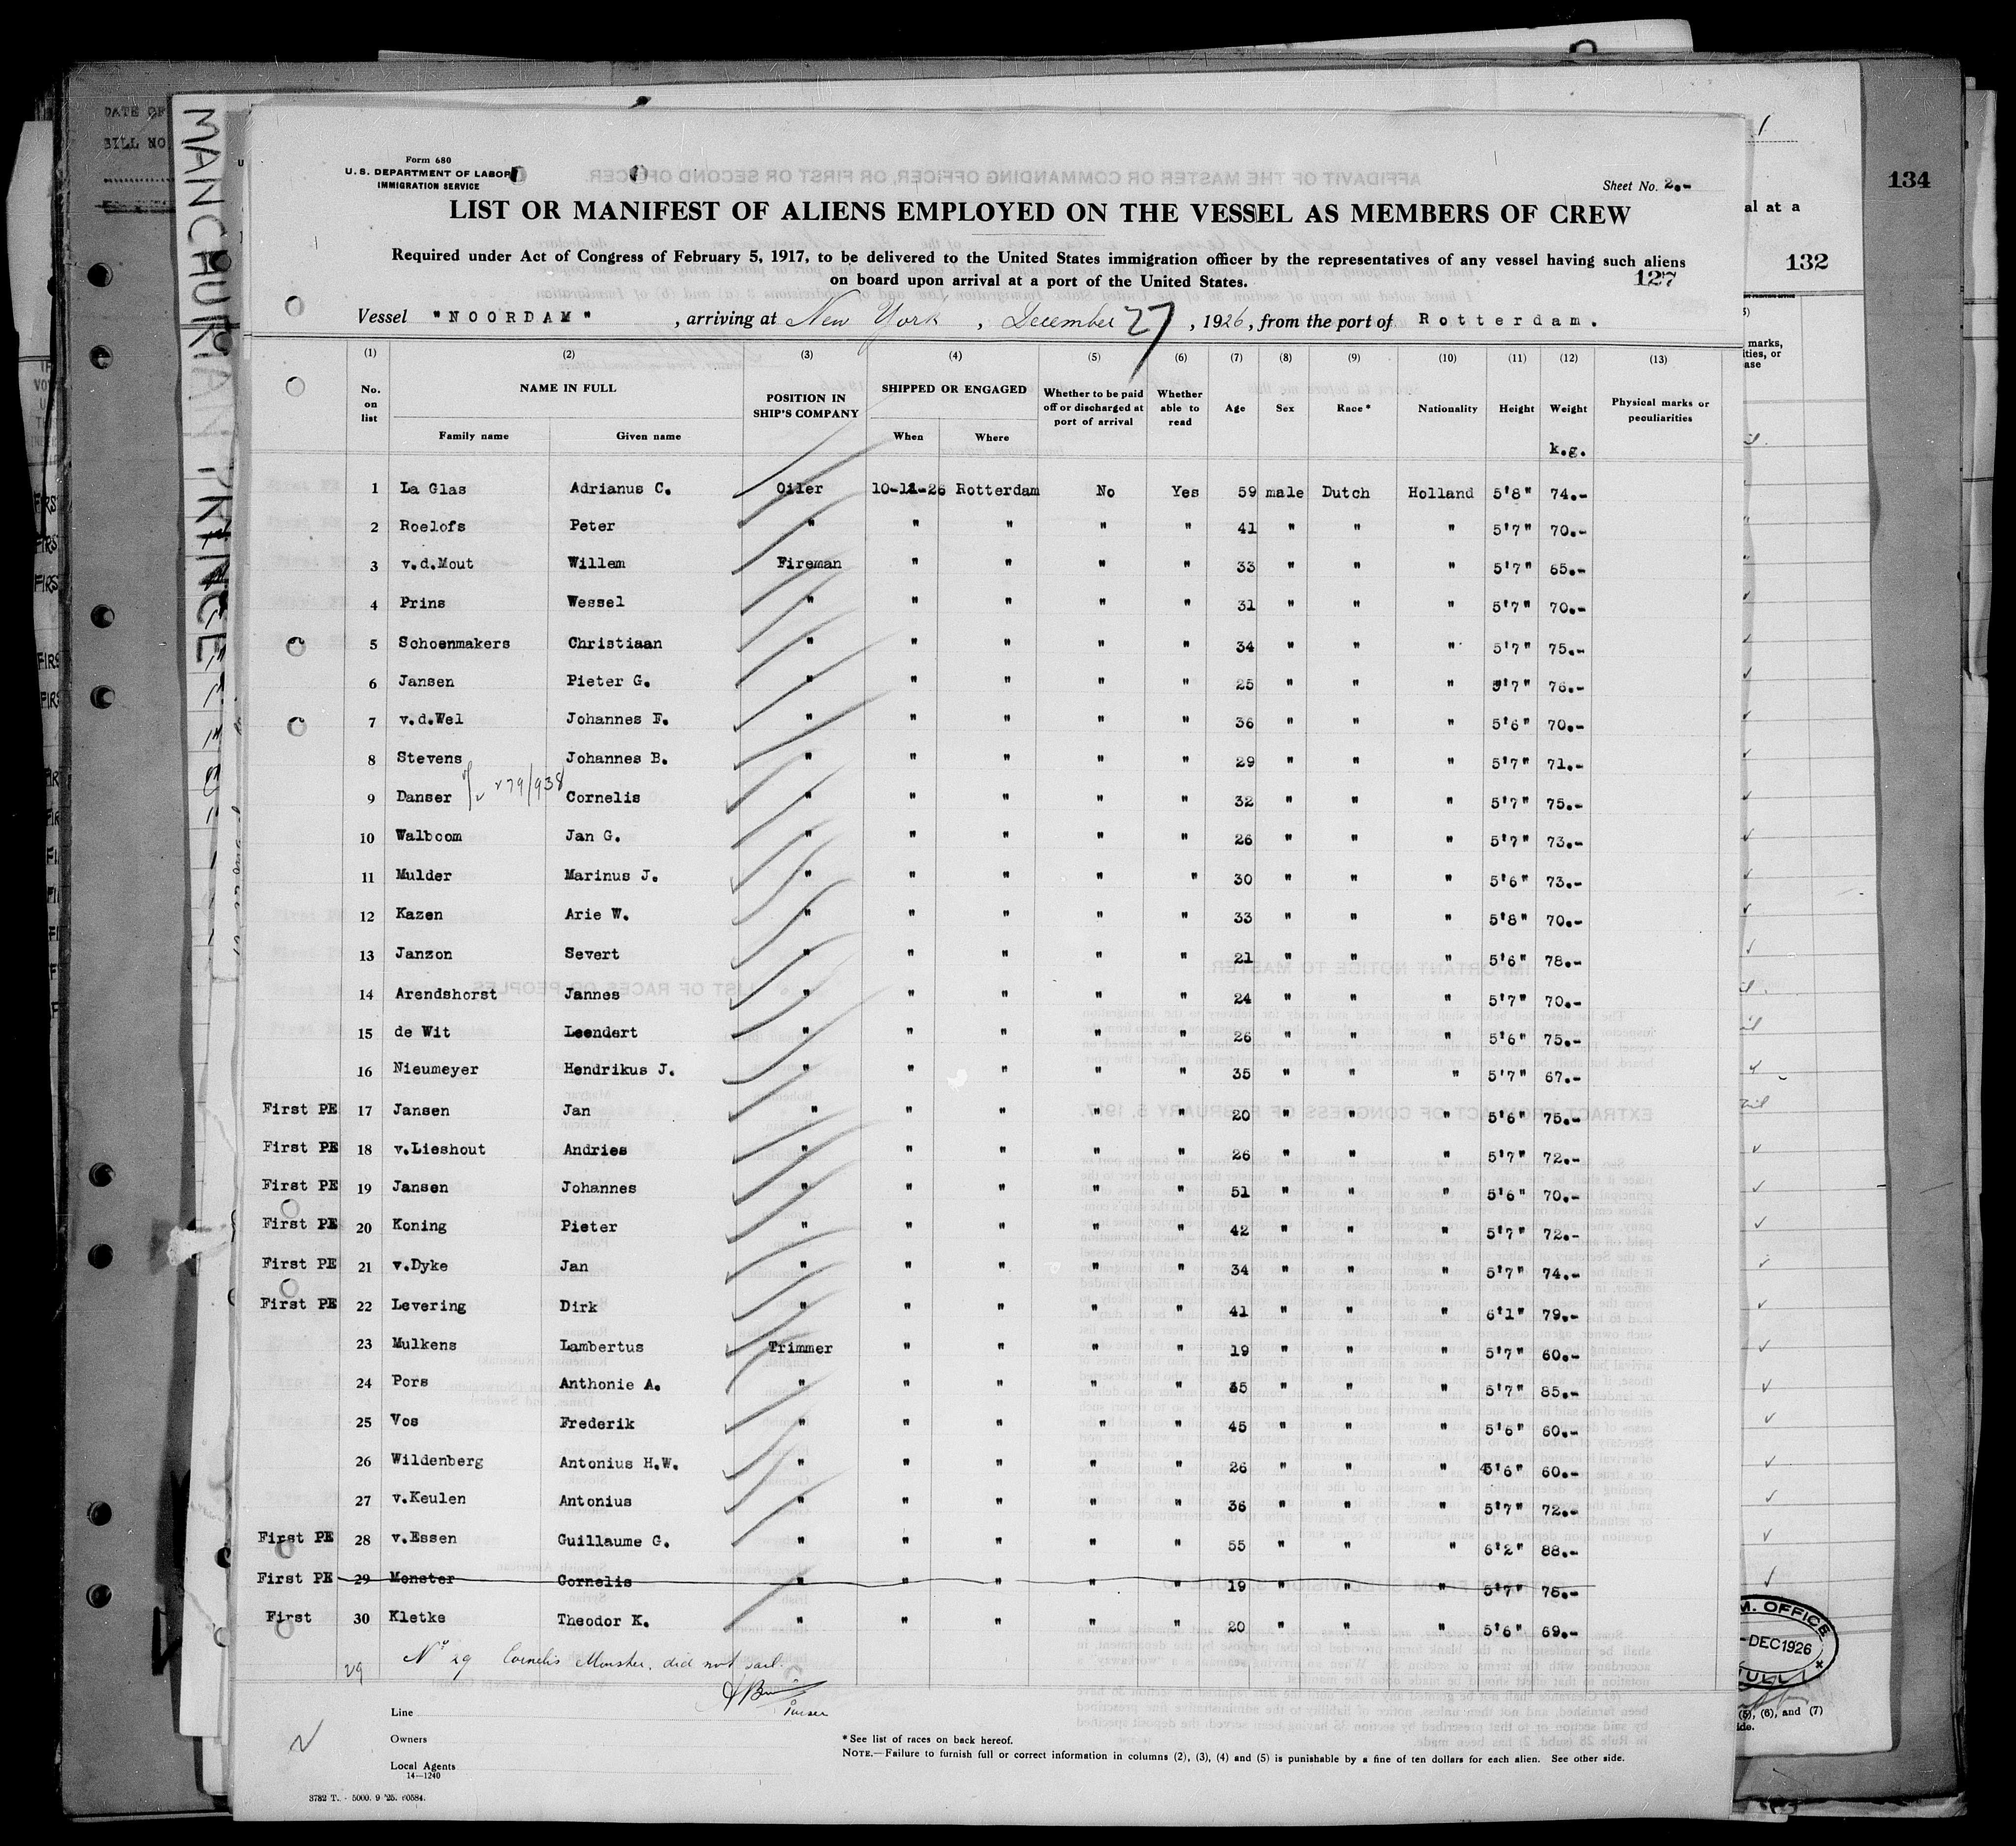 134
132
DATE OF
BILL NO
MANCHURIAN PRINCE
al at a
marks,
Form 680
U. S. DEPARTMENT OF LABOR
IMMIGRATION SERVICE
Sheet No. 2.-
LIST OR MANIFEST OF ALIENS EMPLOYED ON THE VESSEL AS MEMBERS OF CREW
Required under Act of Congress of February 5, 1917, to be delivered to the United States immigration officer by the representatives of any vessel having such aliens
on board upon arrival at a port of the United States.
127
Vessel "NOORDAM", arriving at New York, December 27, 1926, from the port of Rotterdam.
(1) (2) (3) (4) (5) (6) (7) (8) (9) (10) (11) (12) (13)
No. on list NAME IN FULL Family name Given name POSITION IN SHIP'S COMPANY SHIPPED OR ENGAGED When Where Whether to be paid off or discharged at port of arrival Whether able to read Age Sex Race* Nationality Height Weight Physical marks or peculiarities
k.g.
1 La Glas Adrianus C. Oiler 10-12-26 Rotterdam No Yes 59 male Dutch Holland 5'8" 74.-
2 Roelofs Peter " " " " " 41 " " " 5'7" 70.-
3 v.d.Mout Willem Fireman " " " " 33 " " " 5'7" 65.-
4 Prins Wessel " " " " " 31 " " " 5'7" 70.-
5 Schoenmakers Christiaan " " " " " 34 " " " 5'7" 75.-
6 Jansen Pieter G. " " " " " 25 " " " 5'7" 76.-
7 v.d.Wel Johannes F. " " " " " 36 " " " 5'6" 70.-
8 Stevens Johannes B. " " " " " 29 " " " 5'7" 71.-
79/938
9 Danser Cornelis " " " " " 32 " " " 5'7" 75.-
10 Walboom Jan G. " " " " " 26 " " " 5'7" 73.-
11 Mulder Marinus J. " " " " " 30 " " " 5'6" 73.-
12 Kazen Arie W. " " " " " 33 " " " 5'8" 70.-
13 Janzon Severt " " " " " 21 " " " 5'6" 78.-
14 Arendshorst Jannes " " " " " 24 " " " 5'7" 70.-
15 de Wit Leendert " " " " " 26 " " " 5'6" 75.-
16 Nieumeyer Hendrikus J. " " " " " 35 " " " 5'7" 67.-
First PE 17 Jansen Jan " " " " " 20 " " " 5'6" 75.-
First PE 18 v.Lieshout Andries " " " " " 26 " " " 5'7" 72.-
First PE 19 Jansen Johannes " " " " " 51 " " " 5'6" 70.-
First PE 20 Koning Pieter " " " " " 42 " " " 5'7" 72.-
First PE 21 v.Dyke Jan " " " " " 34 " " " 5'7" 74.-
First PE 22 Levering Dirk " " " " " 41 " " " 6'1" 79.-
23 Mulkens Lambertus Trimmer " " " " 19 " " " 5'7" 60.-
24 Pors Anthonie A. " " " " " 35 " " " 5'7" 85.-
25 Vos Frederik " " " " " 45 " " " 5'6" 60.-
26 Wildenberg Antonius H.W. " " " " " 26 " " " 5'6" 60.-
27 v.Keulen Antonius " " " " " 36 " " " 5'7" 72.-
First PE 28 v.Essen Guillaume G. " " " " " 55 " " " 6'2" 88.-
First PE 29 Monster Cornelis " " " " " 19 " " " 5'7" 76.-
First 30 Kletke Theodor K. " " " " " 20 " " " 5'6" 69.-
No 29 Cornelis Monster, did not sail.
29
Purser
M. OFFICE
-DEC1926
HULL
(5), (6), and (7)
Line
Owners
Local Agents
14—1240
*See list of races on back hereof.
NOTE.—Failure to furnish full or correct information in columns (2), (3), (4) and (5) is punishable by a fine of ten dollars for each alien. See other side.
3782 T. - 5000. 9 '25. 60584.